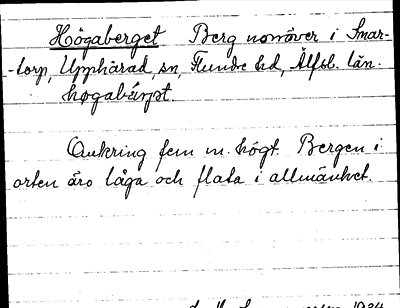 Högaberget Berg norröver i Smar-
-torp, Upphärad, sn, Flundre hd, Älfsb. län.
høgabärjet.
Omkring fem m. högt. Bergen i
orten äro låga och flata i allmänhet.